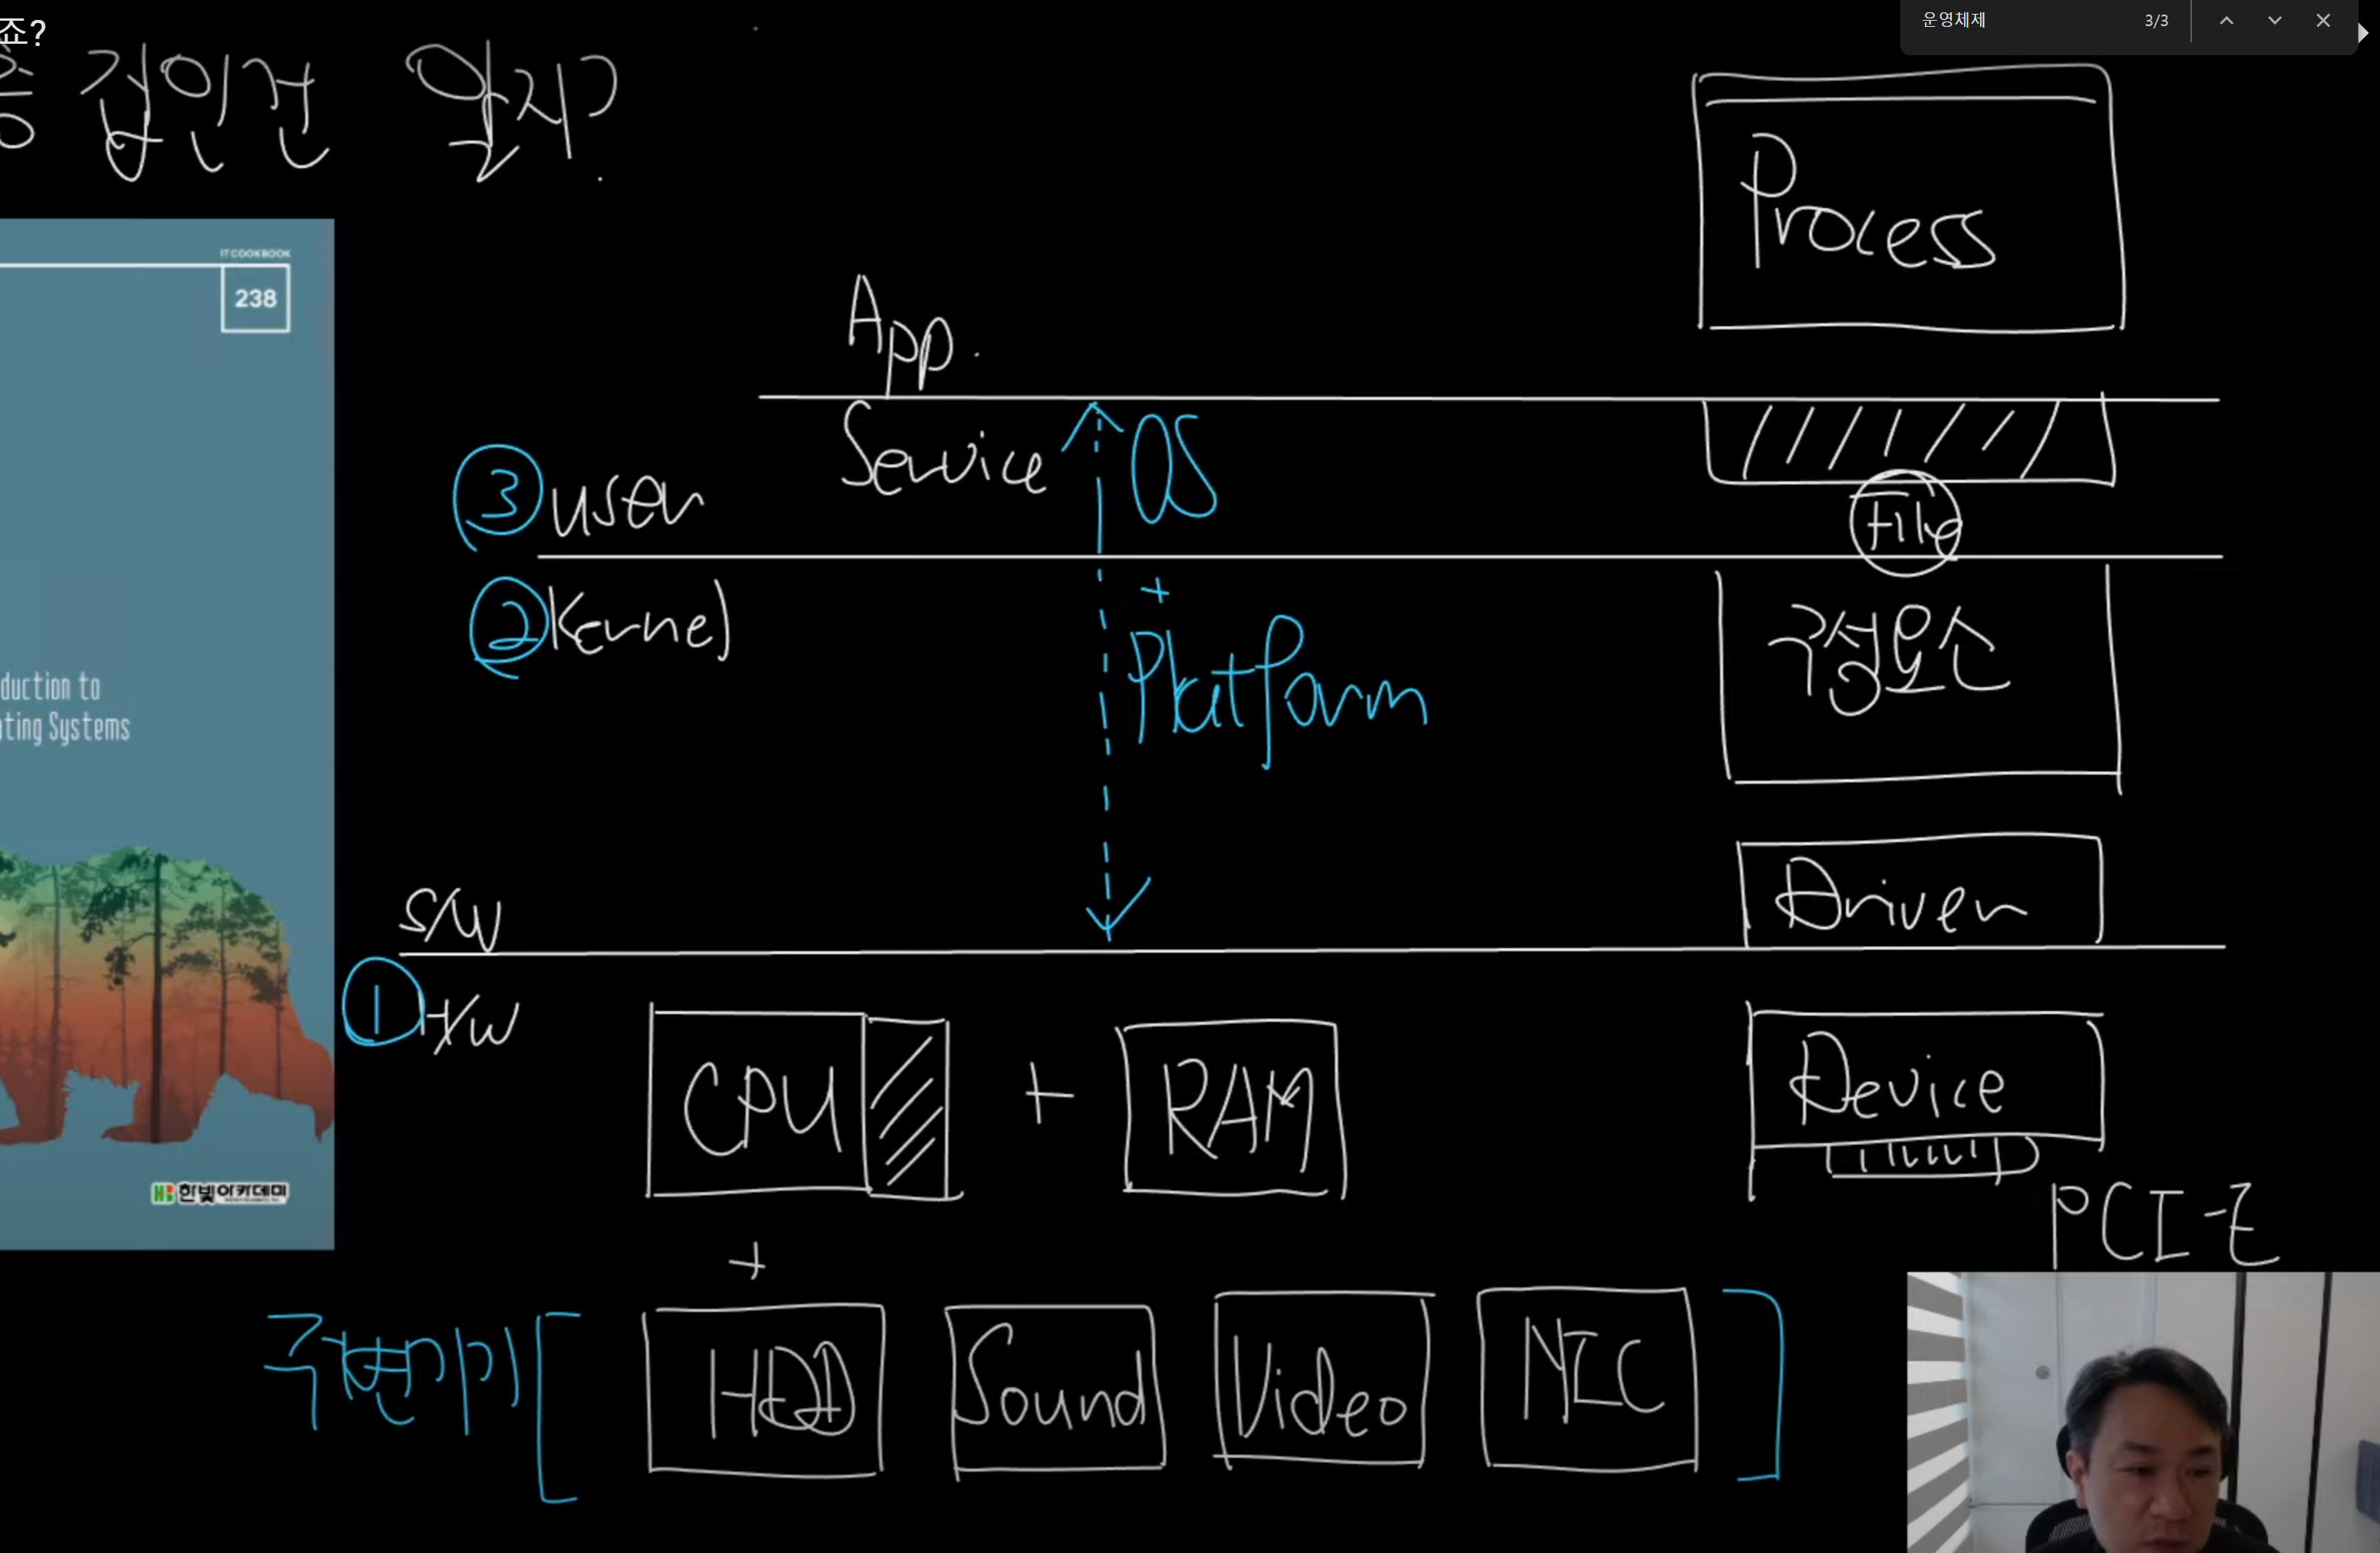 죠?
운영체제 3/3
중 집인건 알지?
IT COOKBOOK
238
duction to
ting Systems
한빛아카데미
Process
App.
Service
OS
③ user
File
② Kernel
+
Platform
구성요소
S/W
Driver
① H/W
CPU + RAM
Device
PCI-E
+
주변기기
HDD Sound Video NIC